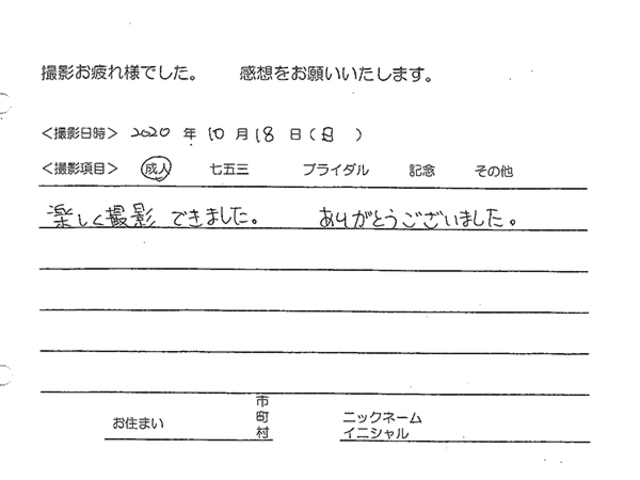 撮影お疲れ様でした。 感想をお願いいたします。
＜撮影日時＞ 2020 年 10 月 18 日（日 ）
＜撮影項目＞ 成人 七五三 ブライダル 記念 その他
楽しく撮影できました。 ありがとうございました。
お住まい 市 町 村 ニックネーム イニシャル